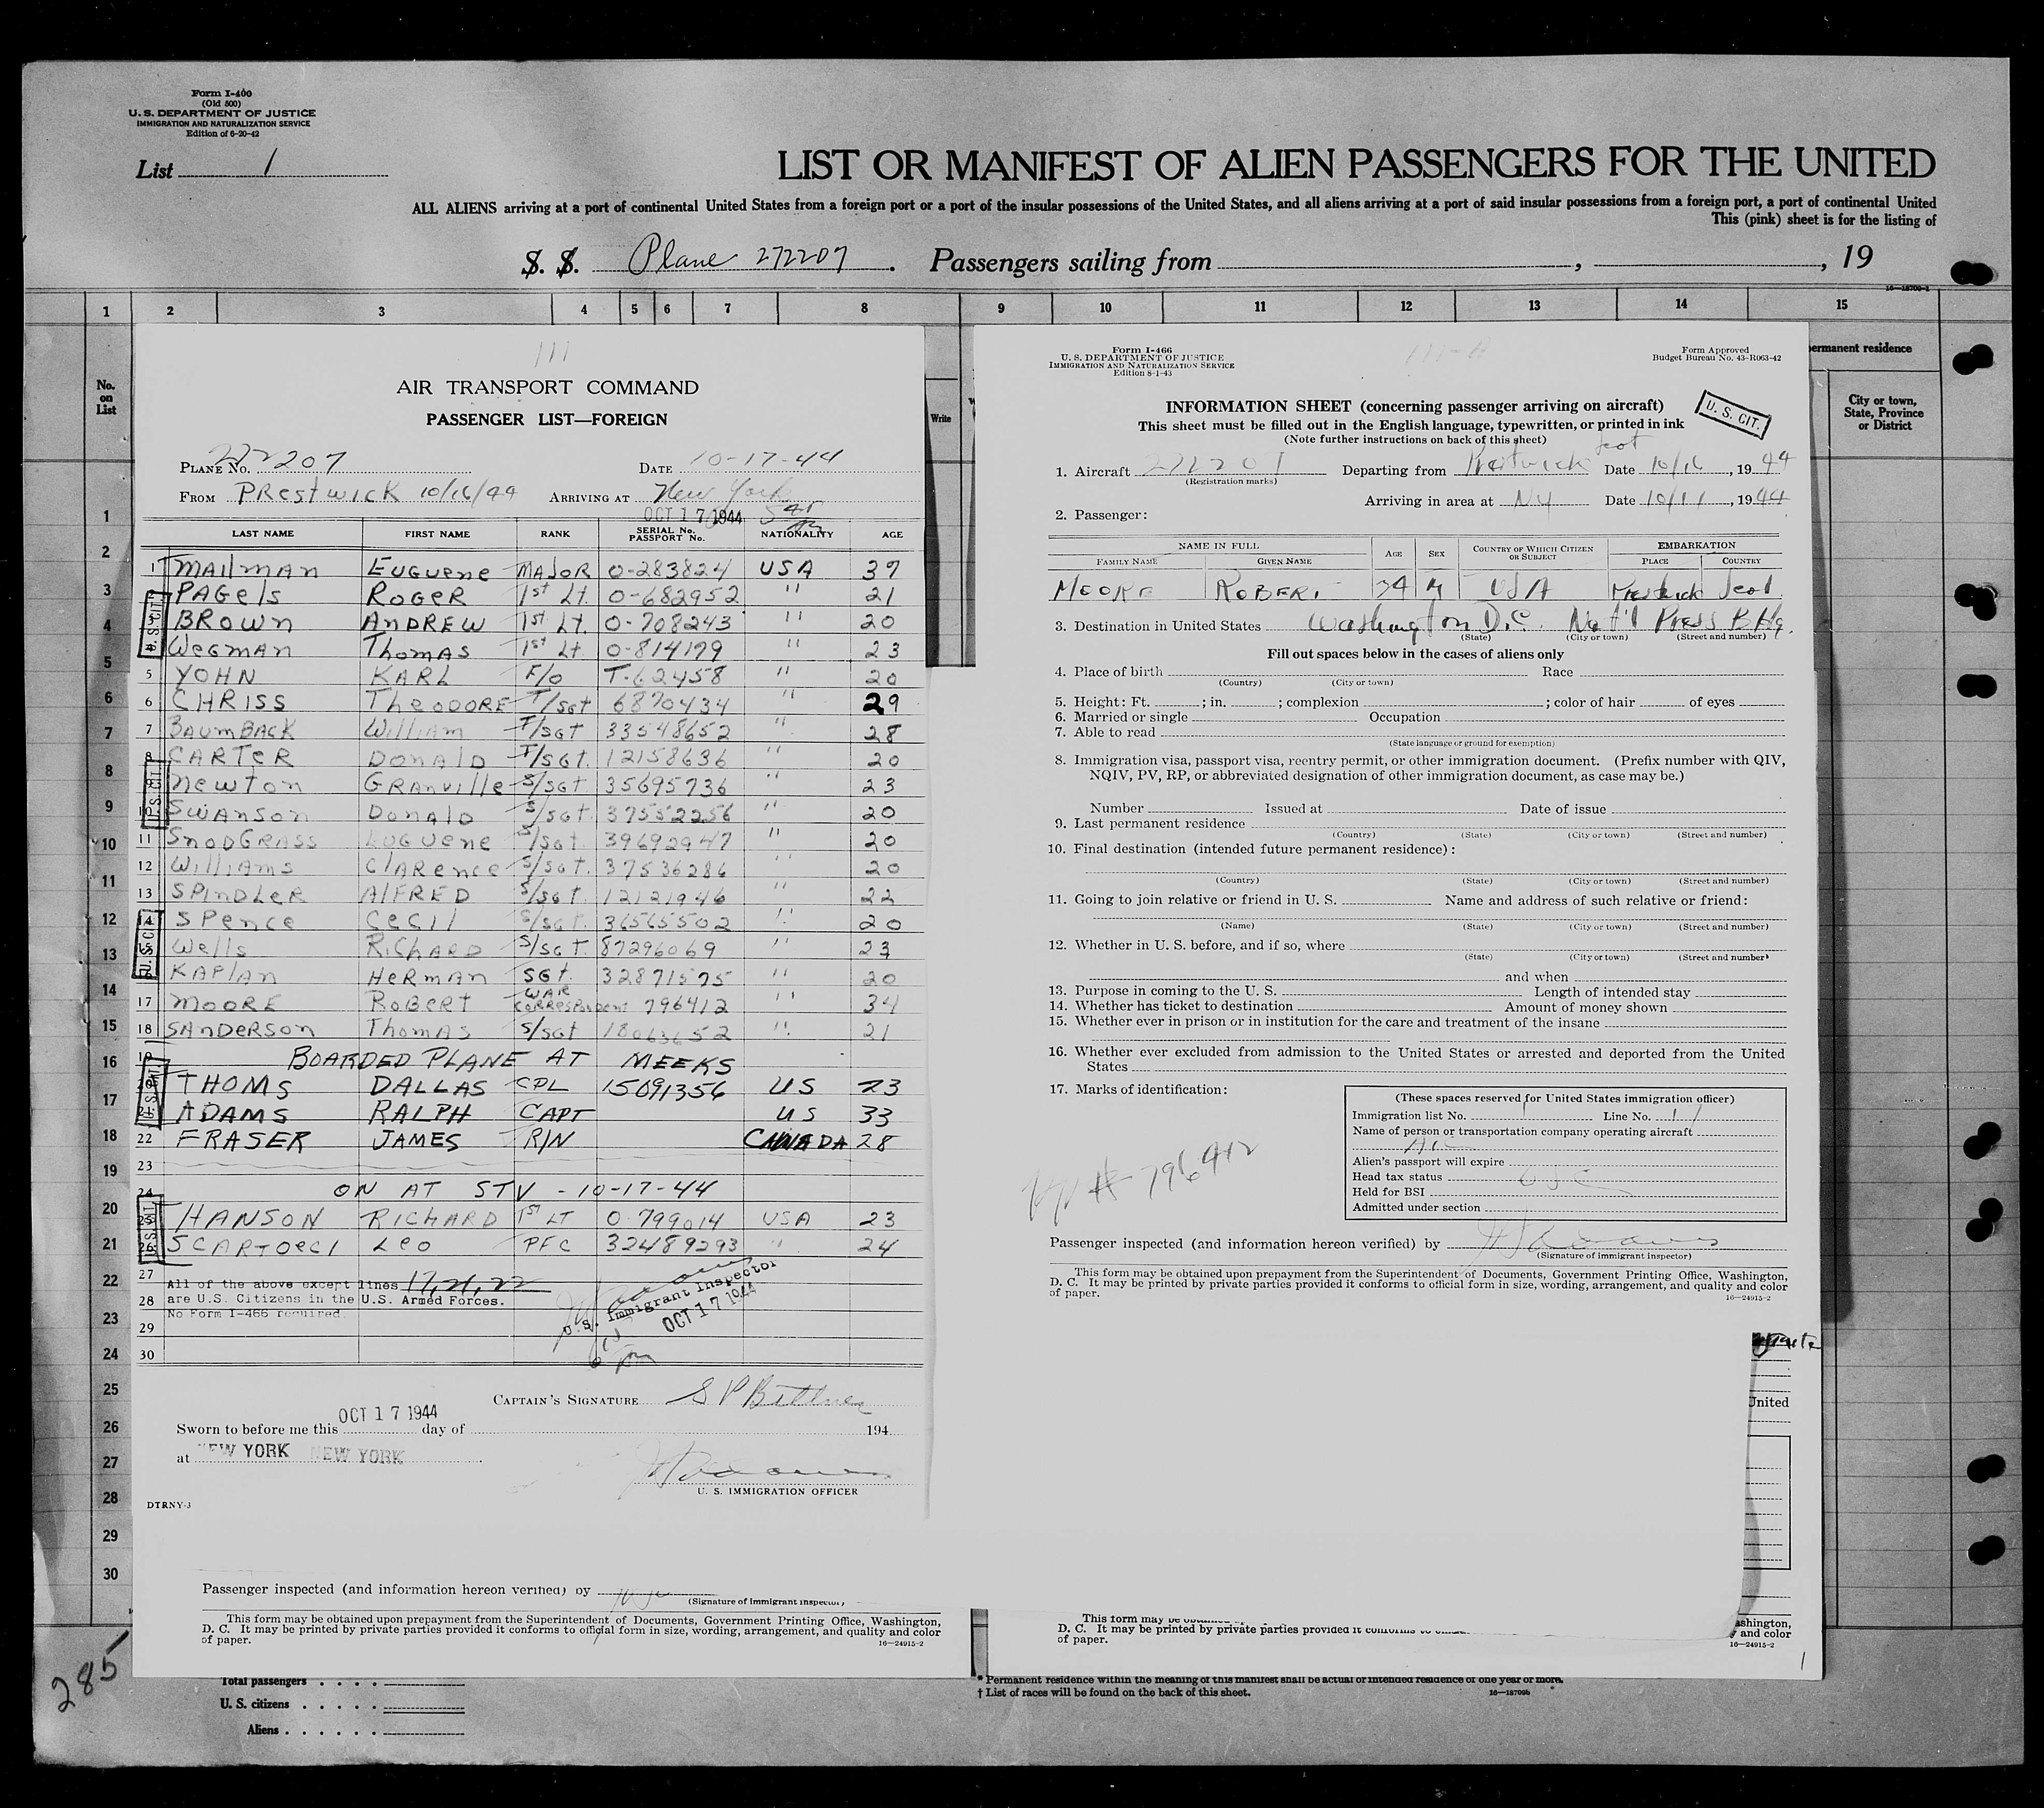 Form I-400
(Old 500)
U. S. DEPARTMENT OF JUSTICE
IMMIGRATION AND NATURALIZATION SERVICE
Edition of 6-20-42
List 1
LIST OR MANIFEST OF ALIEN PASSENGERS FOR THE UNITED
ALL ALIENS arriving at a port of continental United States from a foreign port or a port of the insular possessions of the United States, and all aliens arriving at a port of said insular possessions from a foreign port, a port of continental United
This (pink) sheet is for the listing of
S. S. Plane 272207. Passengers sailing from , , 19
16—18700-1
1 2 3 4 5 6 7 8 9 10 11 12 13 14 15
No. on List
Write
permanent residence
City or town, State, Province or District
111
AIR TRANSPORT COMMAND
PASSENGER LIST—FOREIGN
PLANE NO. 272207 DATE 10-17-44
FROM PRESTWICK 10/16/44 ARRIVING AT New York
OCT 17 1944
LAST NAME FIRST NAME RANK SERIAL No. PASSPORT No. NATIONALITY AGE
1 MAILMAN EUGUENE MAJOR 0-283824 USA 37
PAGELS ROGER 1st Lt. 0-682952 " 21
BROWN ANDREW 1st Lt. 0-708243 " 20
WEGMAN THOMAS 1st Lt. 0-814179 " 23
5 YOHN KARL F/O T-62458 " 20
6 CHRISS THEODORE T/SGT 6870434 " 29
7 BAUMBACK WILLIAM T/SGT 33548652 " 28
8 CARTER DONALD T/SGT. 12158636 " 20
NEWTON GRANVILLE S/SGT 35695736 " 23
10 SWANSON DONALD S/SGT. 37552256 " 20
11 SNODGRASS EUGUENE S/SGT 39692947 " 20
12 WILLIAMS CLARENCE S/SGT. 37536286 " 20
13 SPINDLER ALFRED S/SGT 12121946 " 22
14 SPENCE CECIL S/SGT. 36565502 " 20
WELLS RICHARD S/SGT. 87296069 " 23
KAPLAN HERMAN SGT. 32871575 " 20
17 MOORE ROBERT WAR CORRESPONDENT 796412 " 34
18 SANDERSON THOMAS S/SGT 18063652 " 21
19 BOARDED PLANE AT MEEKS
THOMS DALLAS CPL 15091356 US 23
21 ADAMS RALPH CAPT US 33
22 FRASER JAMES R/N CANADA 28
23
24 ON AT STV - 10-17-44
25 HANSON RICHARD 1ST LT 0-799014 USA 23
26 SCARTOECI LEO PFC 32489293 " 24
27 All of the above except lines 17, 21, 22
28 are U.S. Citizens in the U.S. Armed Forces.
No Form I-466 required.
29
30
U. S. Immigrant Inspector
OCT 17 1944
CAPTAIN'S SIGNATURE
Sworn to before me this OCT 17 1944 day of 194
at NEW YORK NEW YORK
U. S. IMMIGRATION OFFICER
DTRNY-3
Passenger inspected (and information hereon verified) by
(Signature of immigrant inspector)
This form may be obtained upon prepayment from the Superintendent of Documents, Government Printing Office, Washington,
D. C. It may be printed by private parties provided it conforms to official form in size, wording, arrangement, and quality and color
of paper.
16—24915-2
285
Total passengers
U. S. citizens
Aliens
Form I-466
U. S. DEPARTMENT OF JUSTICE
IMMIGRATION AND NATURALIZATION SERVICE
Edition 8-1-43
111-A
Form Approved
Budget Bureau No. 43-R063-42
U. S. CIT.
INFORMATION SHEET (concerning passenger arriving on aircraft)
This sheet must be filled out in the English language, typewritten, or printed in ink
(Note further instructions on back of this sheet)
1. Aircraft 272207 Departing from Prestwick Scot Date 10/16, 1944
(Registration marks)
Arriving in area at NY Date 10/17, 1944
2. Passenger:
NAME IN FULL AGE SEX COUNTRY OF WHICH CITIZEN OR SUBJECT EMBARKATION
FAMILY NAME GIVEN NAME PLACE COUNTRY
MOORE ROBERT 34 M USA Prestwick Scot
3. Destination in United States Washington D.C. Nat'l Press Bldg.
(State) (City or town) (Street and number)
Fill out spaces below in the cases of aliens only
4. Place of birth Race
(Country) (City or town)
5. Height: Ft. ; in. ; complexion ; color of hair of eyes
6. Married or single Occupation
7. Able to read
(State language or ground for exemption)
8. Immigration visa, passport visa, reentry permit, or other immigration document. (Prefix number with QIV,
NQIV, PV, RP, or abbreviated designation of other immigration document, as case may be.)
Number Issued at Date of issue
9. Last permanent residence
(Country) (State) (City or town) (Street and number)
10. Final destination (intended future permanent residence):
(Country) (State) (City or town) (Street and number)
11. Going to join relative or friend in U. S. Name and address of such relative or friend:
(Name) (State) (City or town) (Street and number)
12. Whether in U. S. before, and if so, where
(State) (City or town) (Street and number)
and when
13. Purpose in coming to the U. S. Length of intended stay
14. Whether has ticket to destination Amount of money shown
15. Whether ever in prison or in institution for the care and treatment of the insane
16. Whether ever excluded from admission to the United States or arrested and deported from the United
States
17. Marks of identification:
# 796412
(These spaces reserved for United States immigration officer)
Immigration list No. 1 Line No. 17
Name of person or transportation company operating aircraft
Alien's passport will expire
Head tax status USC
Held for BSI
Admitted under section
Passenger inspected (and information hereon verified) by
(Signature of immigrant inspector)
This form may be obtained upon prepayment from the Superintendent of Documents, Government Printing Office, Washington,
D. C. It may be printed by private parties provided it conforms to official form in size, wording, arrangement, and quality and color
of paper.
16—24915-2
United
This form may be
D. C. It may be printed by private parties provided it
of paper.
and color
16—24915-2
* Permanent residence within the meaning of this manifest shall be actual or intended residence of one year or more.
† List of races will be found on the back of this sheet.
16—18700b